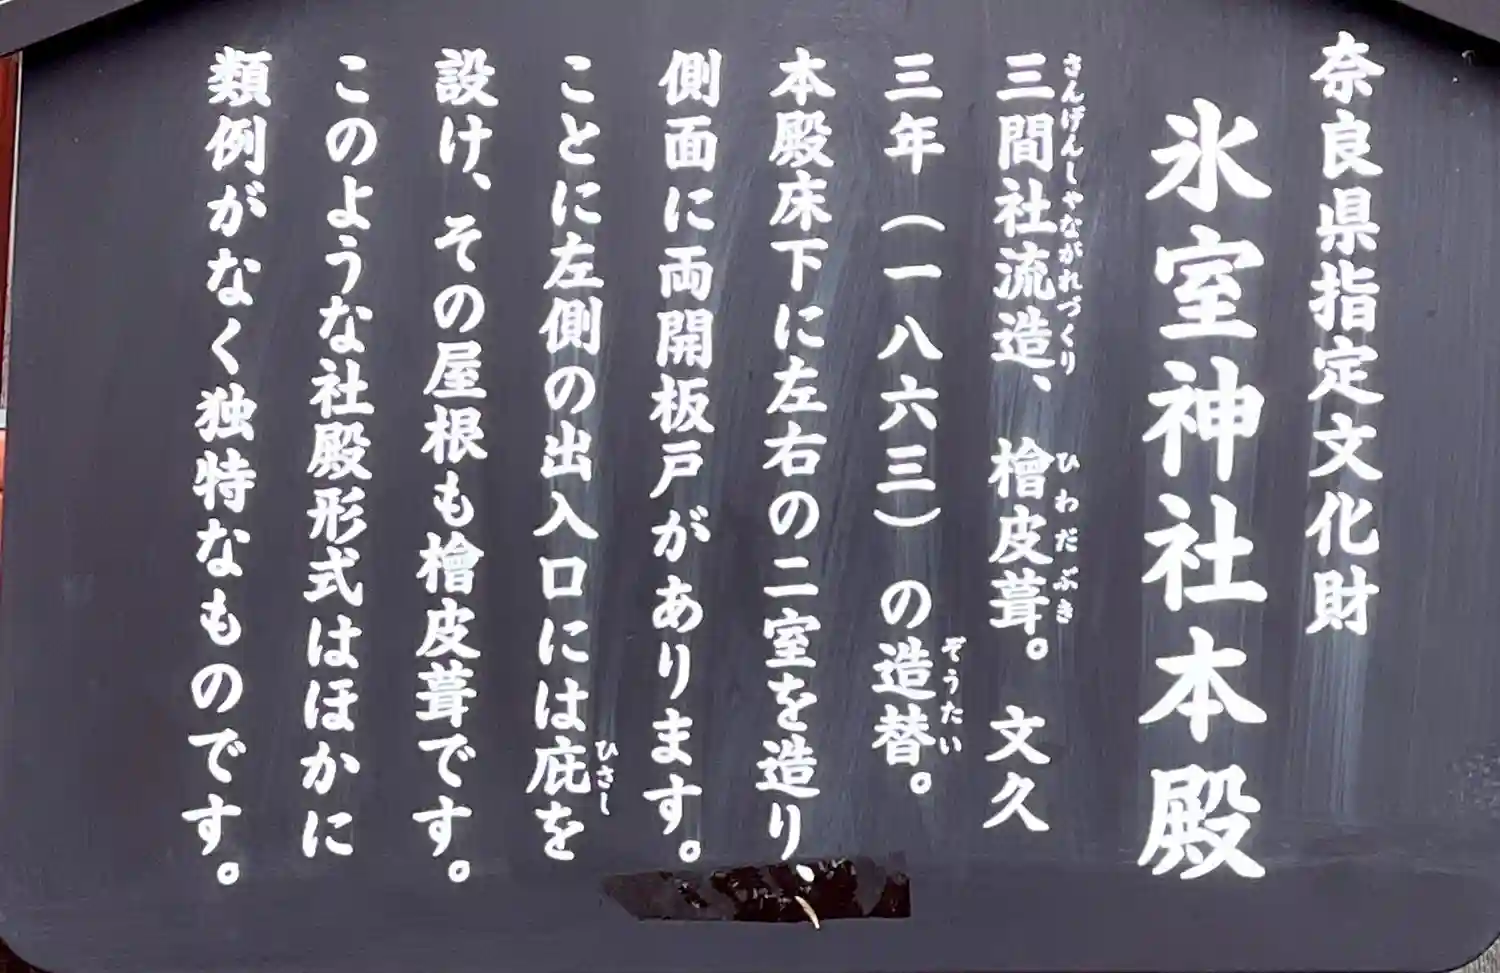 奈良県指定文化財
氷室神社本殿
さんげんしゃながれづくり　ひわだぶき
三間社流造、檜皮葺。　文久
ぞうたい
三年（一八六三）の造替。
本殿床下に左右の二室を造り、
側面に両開板戸があります。
ひさし
ことに左側の出入口には庇を
設け、その屋根も檜皮葺です。
このような社殿形式はほかに
類例がなく独特なものです。